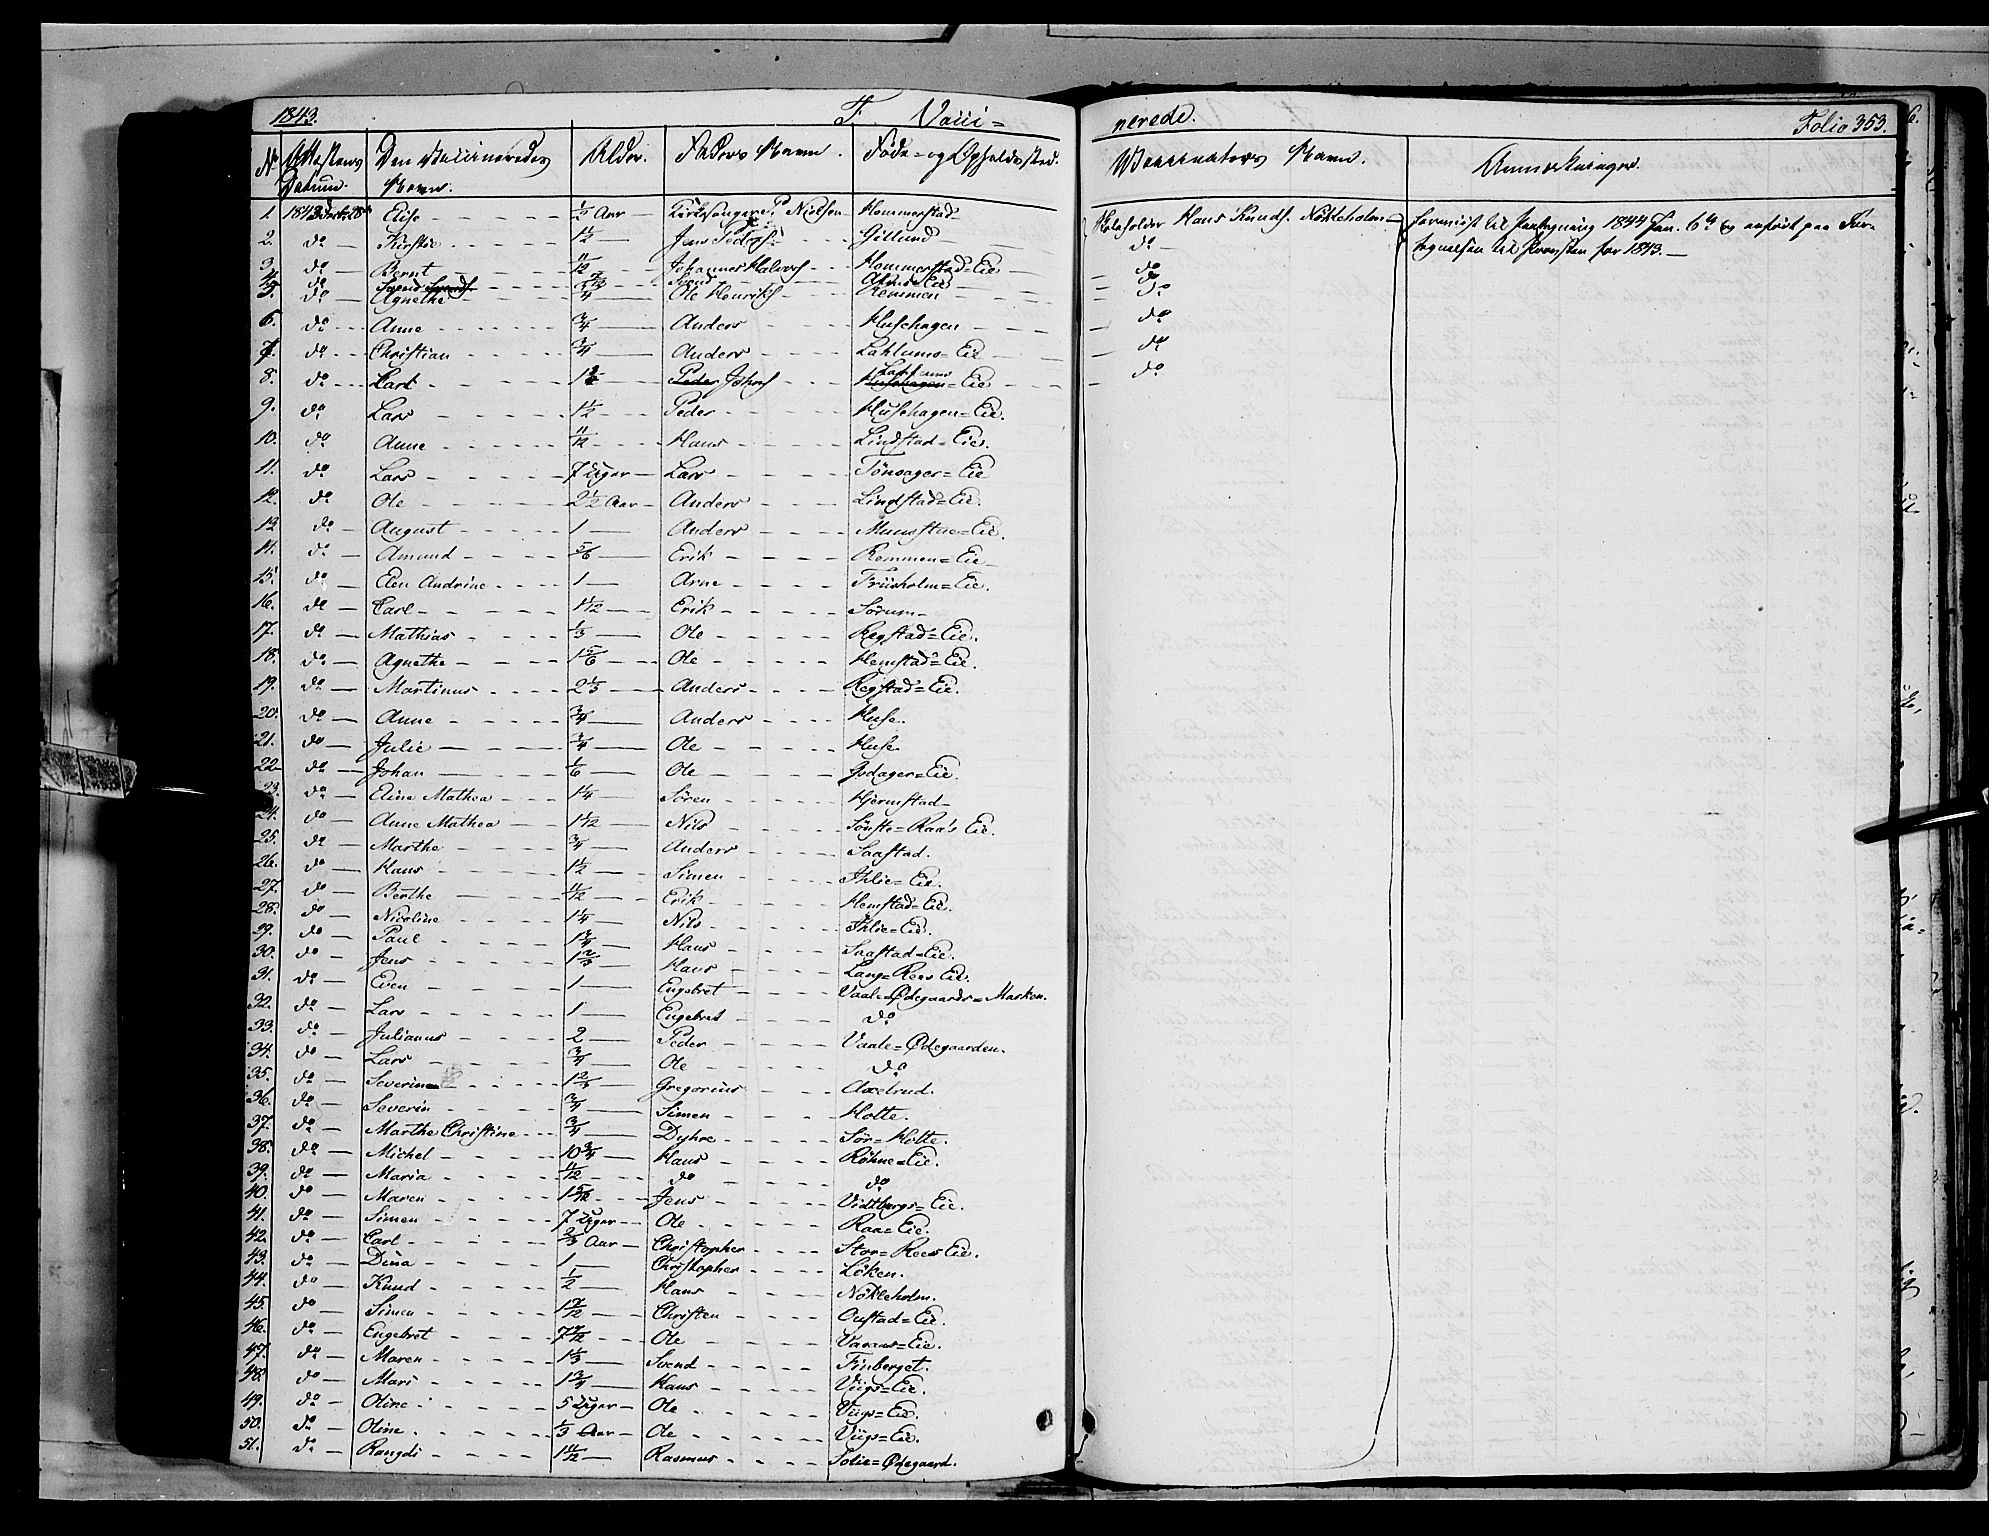 1843. F. Vacci=
nerede. Folio 353.
No Attestens Datum. Den Vaccineredes Navn. Alder. Faders Navn. Føde= og Opholdssted. Vaccinateurs Navn. Anmærkninger.
1. 1843 Elise ½ Aar Kirkesanger P. Nielsen Hommerstad Hans Knuds. Nökleholm 1844 Jan. 6te og anført paa For=
2. do Kirstie 1½ Jens Peders. Gillund do tegnelsen til for 1843.
3. do Bernt 11/12 Johannes Halvors. Hommerstad=Eie do
4. do Svend Svend Eie do
5. do Agnethe Ole Henriks. Remmen do
6. do Anne ¾ Anders Husehagen do
7. do Christian ¾ Anders Lahlums=Eie do
8. do Carl Peder Johns. Eie do
9. do Lars 1½ Peder Husehagen=Eie.
10. do Anne 11/12 Hans Lindstad=Eie.
11. do Lars 7 Uger Lars Tönsager=Eie
12. do Ole 2½ Aar Anders Lindstad=Eie.
13. do August 1 Anders Muusstue=Eie.
14. do Amund 5/6 Erik Remmen=Eie
15. do Elen Andrine 1 Arne Friisholm=Eie.
16. do Carl 1 1/12 Erik Sörum
17. do Mathias ⅓ Ole Regstad=Eie.
18. do Agnethe 1 5/6 Ole Hemstad=Eie.
19. do Martinus 2⅓ Anders Regstad=Eie.
20. do Anne ¾ Anders Huse.
21. do Julie ¾ Ole Huse
22. do Johan 1/6 Ole Opdager=Eie.
23. do Eline Mathea 1¼ Sören Hjermstad
24. do Anne Mathea 1 1/12 Nils Sönste=Raa's Eie.
25. do Marthe ¾ Anders Saastad.
26. do Hans 1½ Simen Ihlie=Eie.
27. do Berthe 11/12 Erik Hemstad=Eie.
28. do Nicoline 1¼ Nils Ihlie=Eie.
29. do Paul 1¾ Hans Saastad=Eie.
30. do Jens 1⅔ Hans Lang=Rees Eie.
31. do Even 1 Engebret Vaale=Ødegaards=Marken.
32. do Lars 1 Engebret do
33. do Julianus 2 Peder Vaale=Ødegaarden.
34. do Lars ¾ Ole do
35. do Severine 1⅔ Gregorius Axelrud.
36. do Severin ¾ Simen Holte.
37. do Marthe Christine ¾ Dyhre Sör=Holte.
38. do Michel 10¾ Hans Röhne=Eie.
39. do Maria 11/12 do do
40. do Maren 1 5/12 Jens Vidtbergs=Eie.
41. do Simen 7 Uger Ole Raa=Eie.
42. do Carl ⅔ Aar Christopher Stor=Rees Eie.
43. do Dina 1 Christopher Löken.
44. do Knud ½ Hans Nökleholm.
45. do Simen 1 7/12 Christen Oustad=Eie.
46. do Engebret 7 7/12 Ole Eie.
47. do Maren 1⅓ Svend Finberget.
48. do Mari 1¾ Hans Viigs=Eie.
49. do Oline 5 Uger Ole Viigs=Eie.
50. do Oline ⅓ Aar Ole Viigs=Eie.
51. do Rangdi 1 11/12 Rasmus Tolie=Ødegaard.